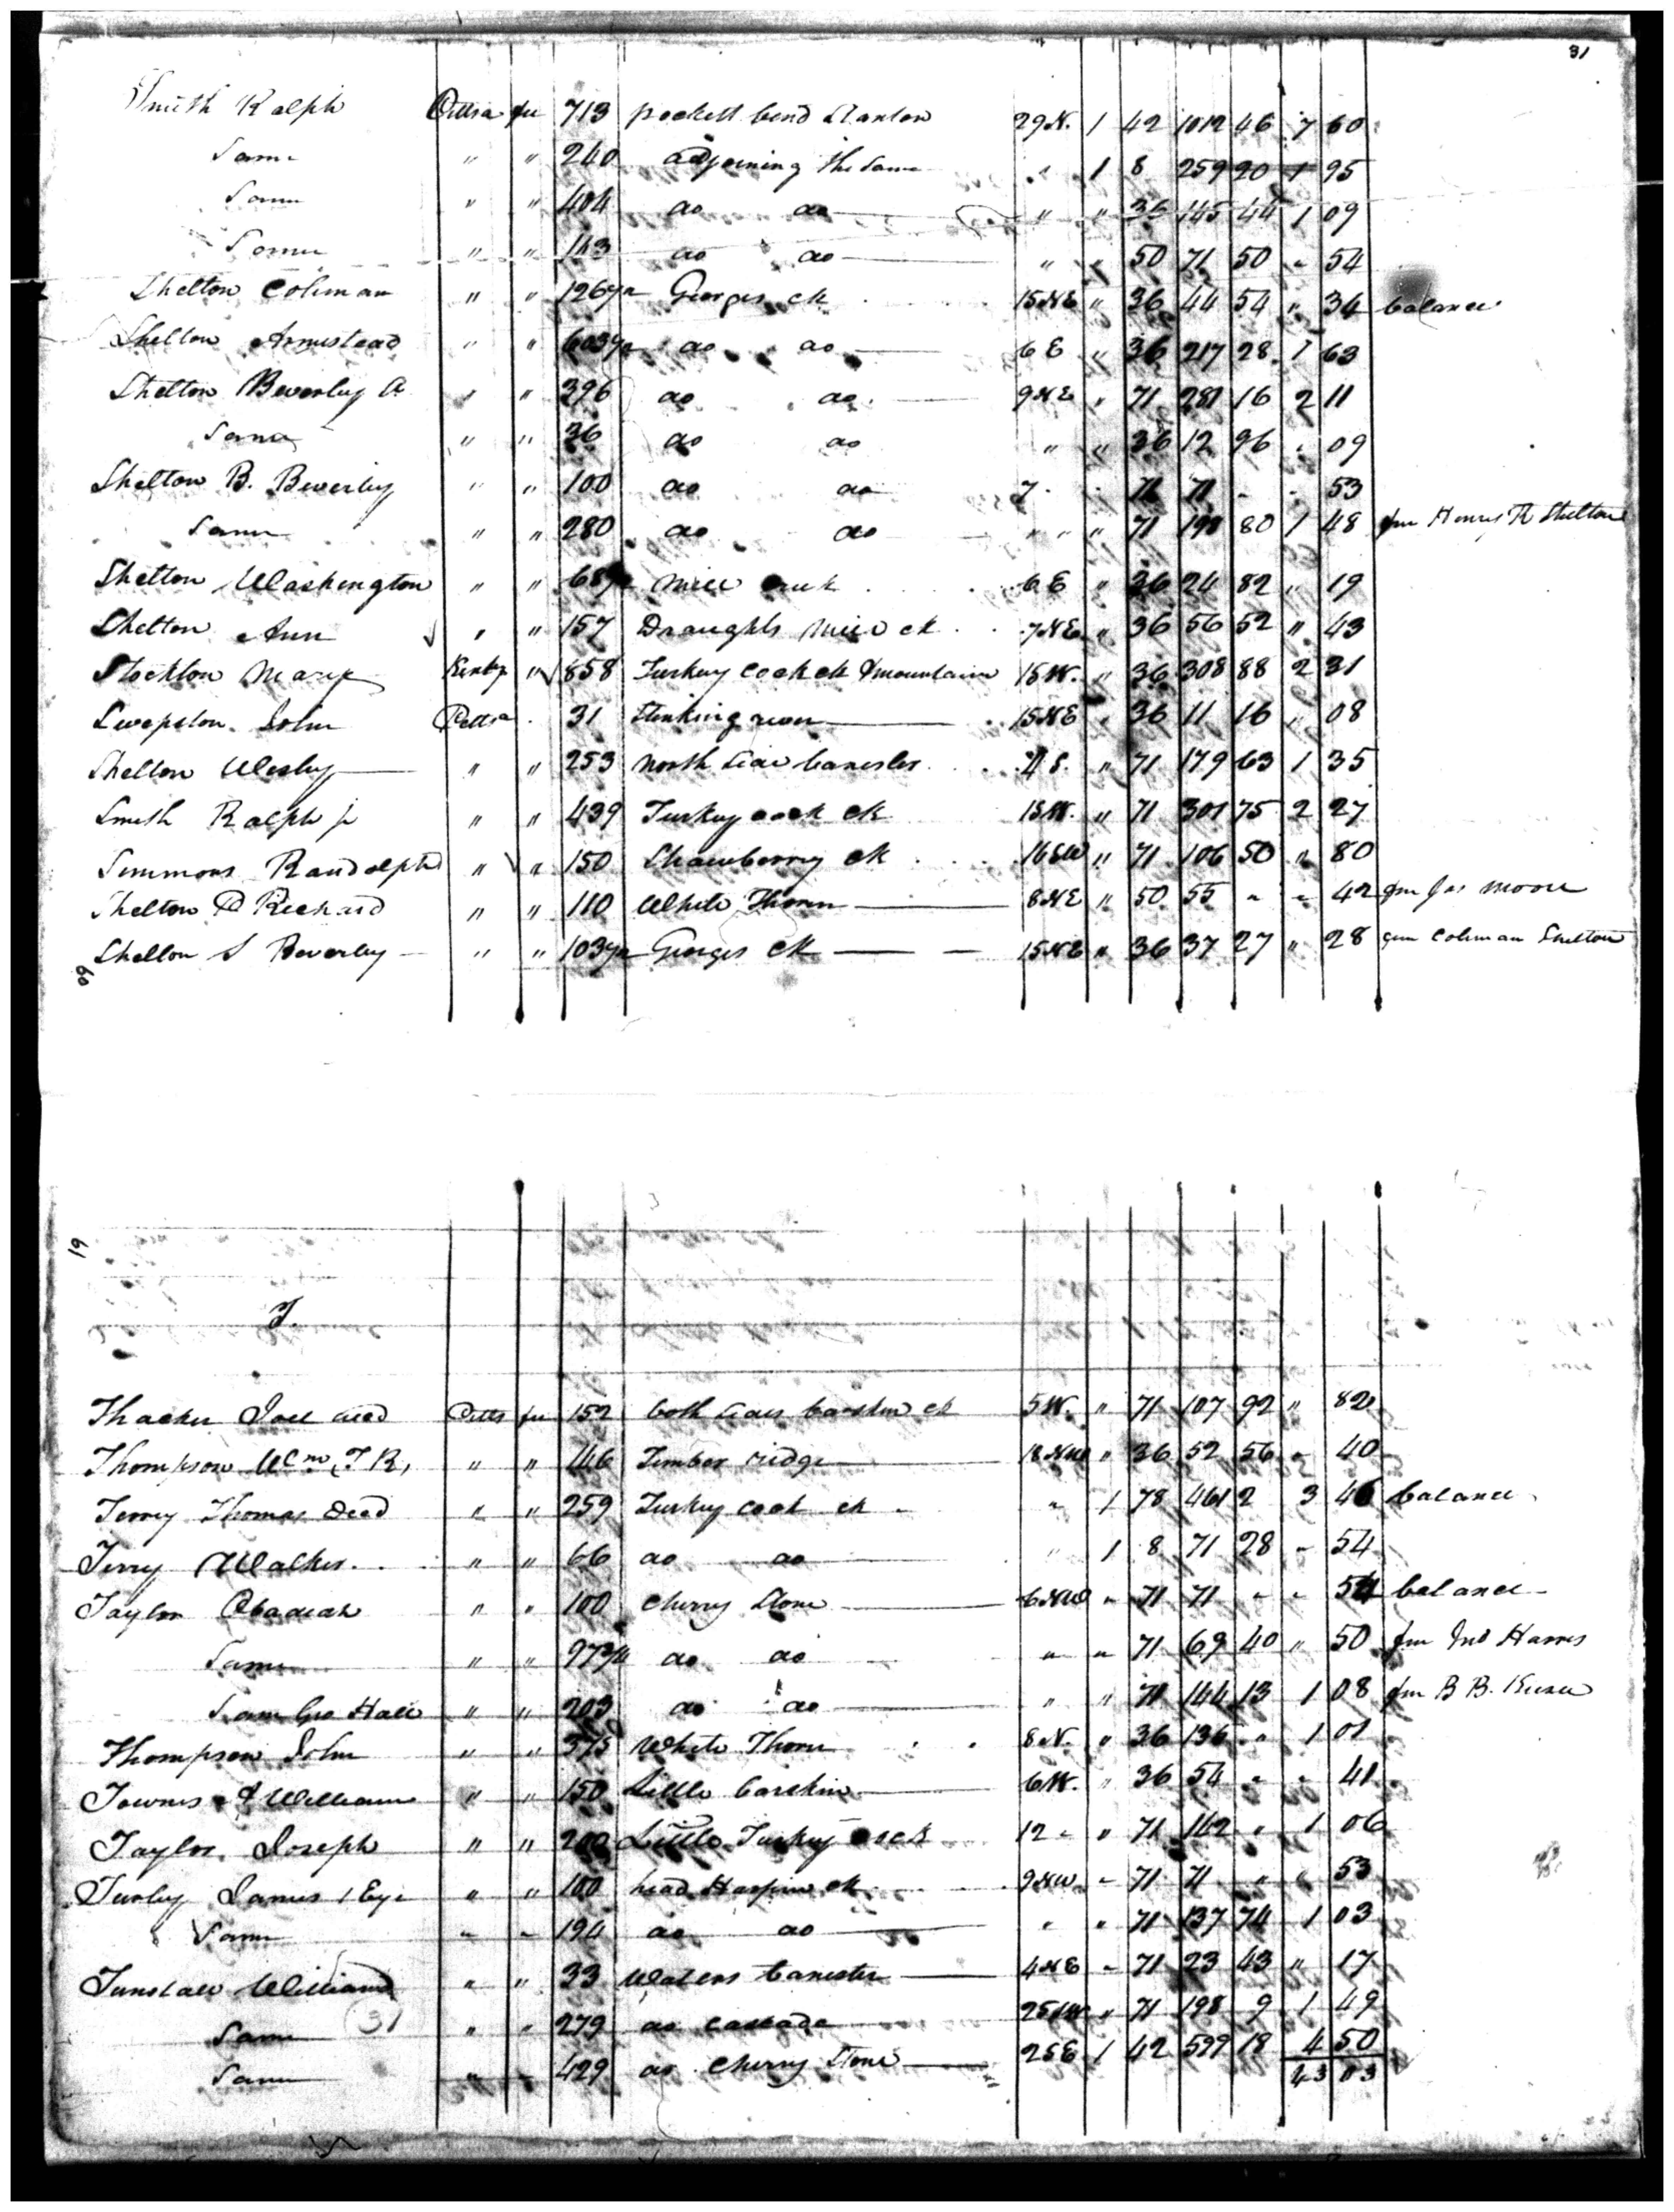 31
Smith Ralph Pittsa fee 713 pockett bend Stanton 29 N. 1 42 1012 46 7 60
Same " " 240 adjoining the Same " 1 8 259 20 1 95
Same " " 404 do do " " 36 145 44 1 09
Same " " 143 do do " " 50 71 50 " 54
Shelton Coleman " " Georges ck 15 NE " 36 44 54 " 34 balance
Shelton Armistead " " do do 6 E " 36 217 28 1 63
Shelton Beverley A. " " 396 do do 9 NE " 71 281 16 2 11
Same " " 36 do do " " 36 12 96 " 09
Shelton B. Beverley " " 100 do do 7 " 71 71 " " 53
Same " " 280 do do " " " 71 198 80 1 48 fm Henry R Shelton
Shelton Washington " " Mill creek 6 E " 36 24 82 " 19
Shelton Ann " " 157 Draughts Mill ck 7 NE " 36 56 52 " 43
Stockton Mary " 858 Turkey cock ck & mountain 15 W. " 36 308 88 2 31
Swepston John Pittsa 31 Stinking river 15 NE " 36 11 16 " 08
Shelton Wesley " " 253 North side banester " 71 179 63 1 35
Smith Ralph jr " " 439 Turkey cock ck 13 W. " 71 301 75 2 27
Simmons Randolph " " 150 Strawberry ck 16 SW " 71 106 50 " 80
Shelton D Richard " " 110 White Thorn 8 NE " 50 55 " " 42 fm Jas Moore
Shelton S Beverley " " Georges ck 15 NE " 36 37 27 " 28 fm Coleman Shelton
60
61
T.
Thacker Joel decd Pitts fee 152 both sides bearskin ck 5 W. " 71 107 92 " 82
Thompson Wm (T R) " " 146 Timber ridge 18 NW " 36 52 56 " 40
Terry Thomas decd " " 259 Turkey cock ck " 1 78 461 2 3 46 balance
Terry Walker " " 66 do do " 1 8 71 28 " 54
Taylor Obadiah " " 100 Cherry Stone 6 NW " 71 71 " " 54 balance
Same " " 97 3/4 do do " " 71 69 40 " 50 fm Jno Harris
Same Geo Hall " " 203 do do " " 71 144 13 1 08 fm B B.
Thompson John " " 375 White Thorn 8 N. " 36 136 " 1 01
Townes William " " 150 Little bearskin 6 W. " 36 54 " " 41
Taylor Joseph " " 200 Little Turkey cock 12 " " 71 142 " 1 06
Turley James " " 100 head Harpin ck 9 NW " 71 71 " " 53
Same " " 194 do do " " 71 137 74 1 03
Tunstall William " " 33 Waters banester 4 NE " 71 23 43 " 17
Same 31 " " 279 do cascade " 71 198 9 1 49
Same " " 429 do Cherry Stone 25 E 1 42 599 18 4 50
43 03